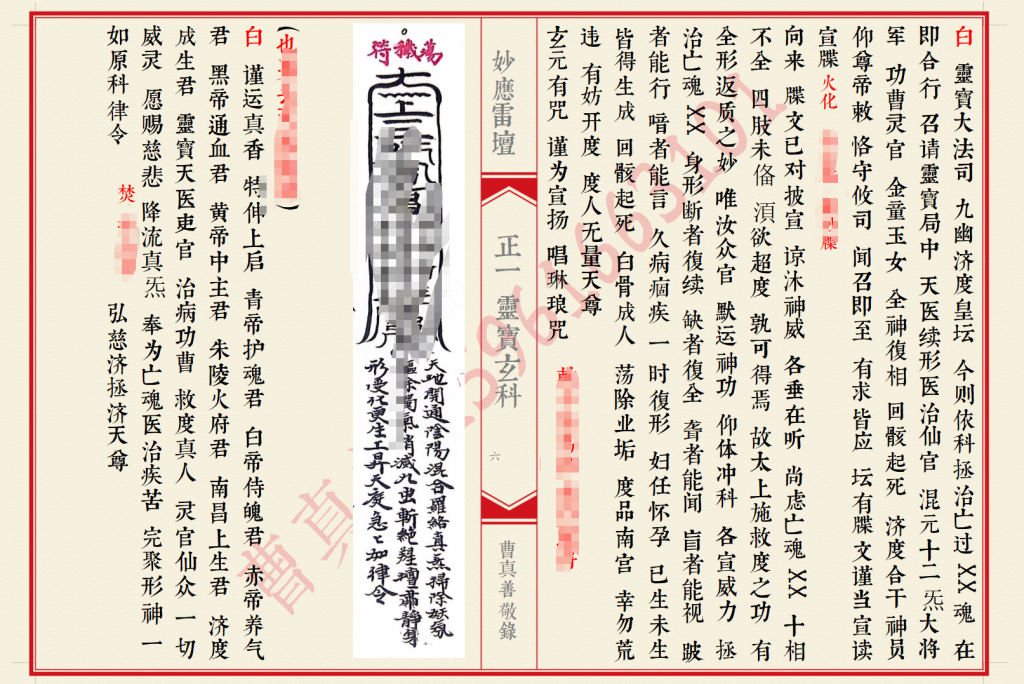 白 靈寶大法司 九幽济度皇坛 今则依科拯治亡过XX魂 在
即合行 召请靈寶局中 天医续形医治仙官 混元十二炁大将
军 功曹灵官 金童玉女 全神復相 回骸起死 济度合干神员
仰尊帝敕 恪守攸司 闻召即至 有求皆应 坛有牒文谨当宣读
宣牒 火化 牒
向来 牒文已对披宣 谅沐神威 各垂在听 尚虑亡魂XX 十相
不全 四肢未俻 湏欲超度 孰可得焉 故太上施救度之功 有
全形返质之妙 唯汝众官 默运神功 仰体冲科 各宣威力 拯
治亡魂XX 身形断者復续 缺者復全 聋者能闻 盲者能视 跛
者能行 喑者能言 久病痼疾一时復形 妇任怀孕 已生未生
皆得生成 回骸起死 白骨成人 荡除业垢 度品南宫 幸勿荒
违 有妨开度 度人无量天尊
玄元有咒 谨为宣扬 唱琳琅咒
妙應雷壇
正一靈寶玄科
六
曹真善敬錄
荡穢符
天地開通陰陽混合羅絡真炁掃除妖氛
消滅九虫斬絕
形受化更生上昇天庭急々如律令
(也
)
白 谨运真香 特伸上启 青帝护魂君 白帝侍魄君 赤帝养气
君 黑帝通血君 黄帝中主君 朱陵火府君 南昌上生君 济度
成生君 靈寶天医吏官 治病功曹 救度真人 灵官仙众 一切
威灵 愿赐慈悲 降流真炁 奉为亡魂医治疾苦 完聚形神 一
如原科律令 焚 弘慈济拯济天尊